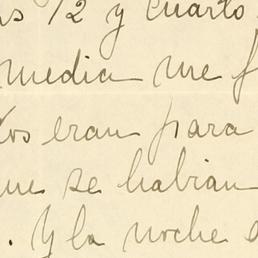 as 12 y cuarto
media me f
los eran para
ue se habian
. Y la noche